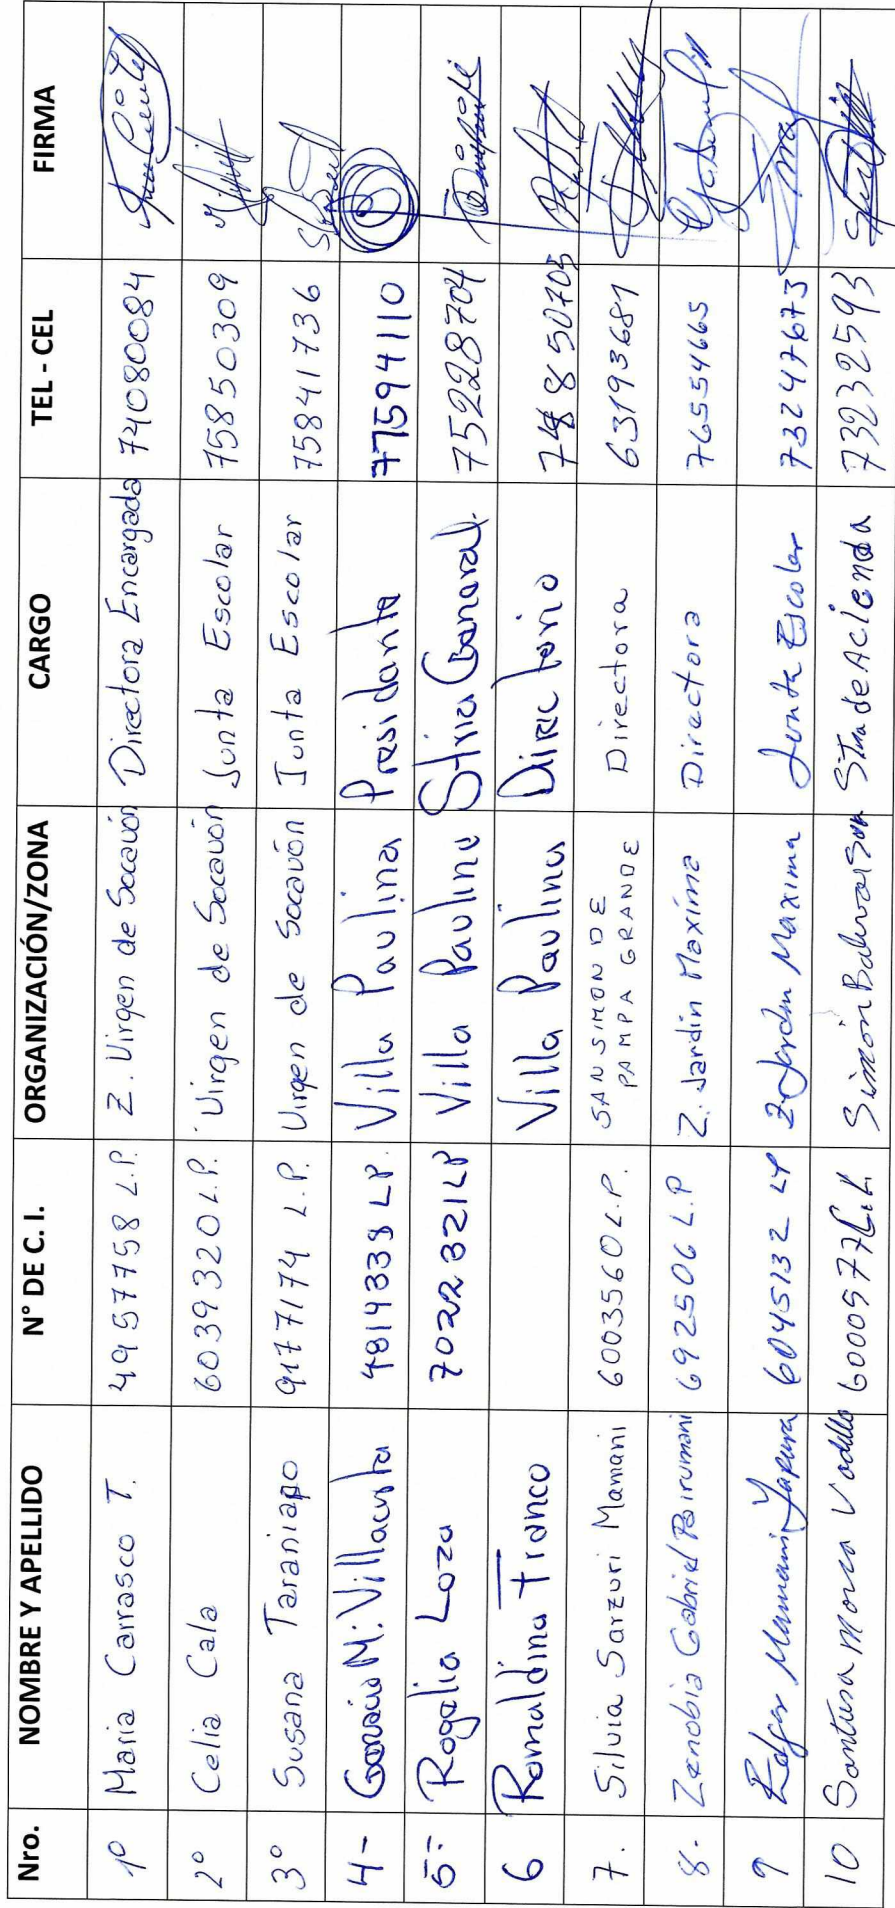 Nro. NOMBRE Y APELLIDO N° DE C. I. ORGANIZACIÓN/ZONA CARGO TEL - CEL FIRMA
1º Maria Carrasco T. 4957758 L.P. Z. Virgen de Socavón Directora Encargada 74080084
2º Celia Cala 6039320 L.P. Virgen de Socavón Junta Escolar 75850309
3º Susana Taraniapo 9177174 L.P. Virgen de Socavón Junta Escolar 75841736
4- M. Villacusta 4814338 LP. Villa Paulina Presidanta 77594110
5- Rogelia Loza 7022321 LP Villa Paulina Stria General. 75228704
6 Romaldina Franco Villa Paulina Directorio
7. Silvia Sarzuri Mamani 6003560 L.P. SAN SIMON DE PAMPA GRANDE Directora 63193681
8. Zenobia Gabriel Poirumani 692506 L.P Z. Jardin Maxima Directora 76554665
9 Mamani Yapura 6045132 LP Z. Jardin Maxima Junta Escolar 73247673
10 Santusa 6000577 Simón Stria de Acienda 73232593